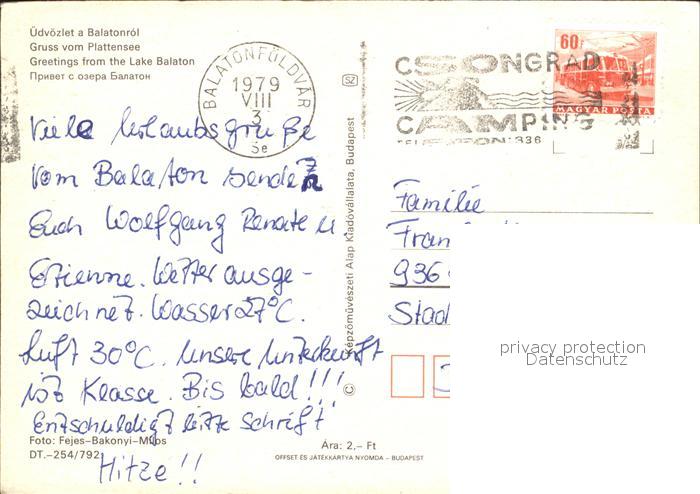 Üdvözlet a Balatonról
Gruss vom Plattensee
Greetings from the Lake Balaton
Привет с озера Балатон
BALATONFÖLDVÁR
1979
VIII
3
Se
SZ
CSONGRÁD
CAMPING
TELEFON: 336
60f
MAGYAR POSTA
Viele Urlaubsgrüße
vom Balaton senden
Euch Wolfgang Renate u
Etienne. Wetter ausge-
zeichnet. Wasser 27°C.
Luft 30°C. Unsere Unterkunft
ist Klasse. Bis bald!!!
Entschuldigt bitte Schrift
Hitze!!
Familie
Fran
936
Stad
Képzőművészeti Alap Kiadóvállalata, Budapest
©
privacy protection
Datenschutz
Foto: Fejes–Bakonyi–Mikos
DT.–254/792
Ára: 2,– Ft
OFFSET ÉS JÁTÉKKÁRTYA NYOMDA – BUDAPEST